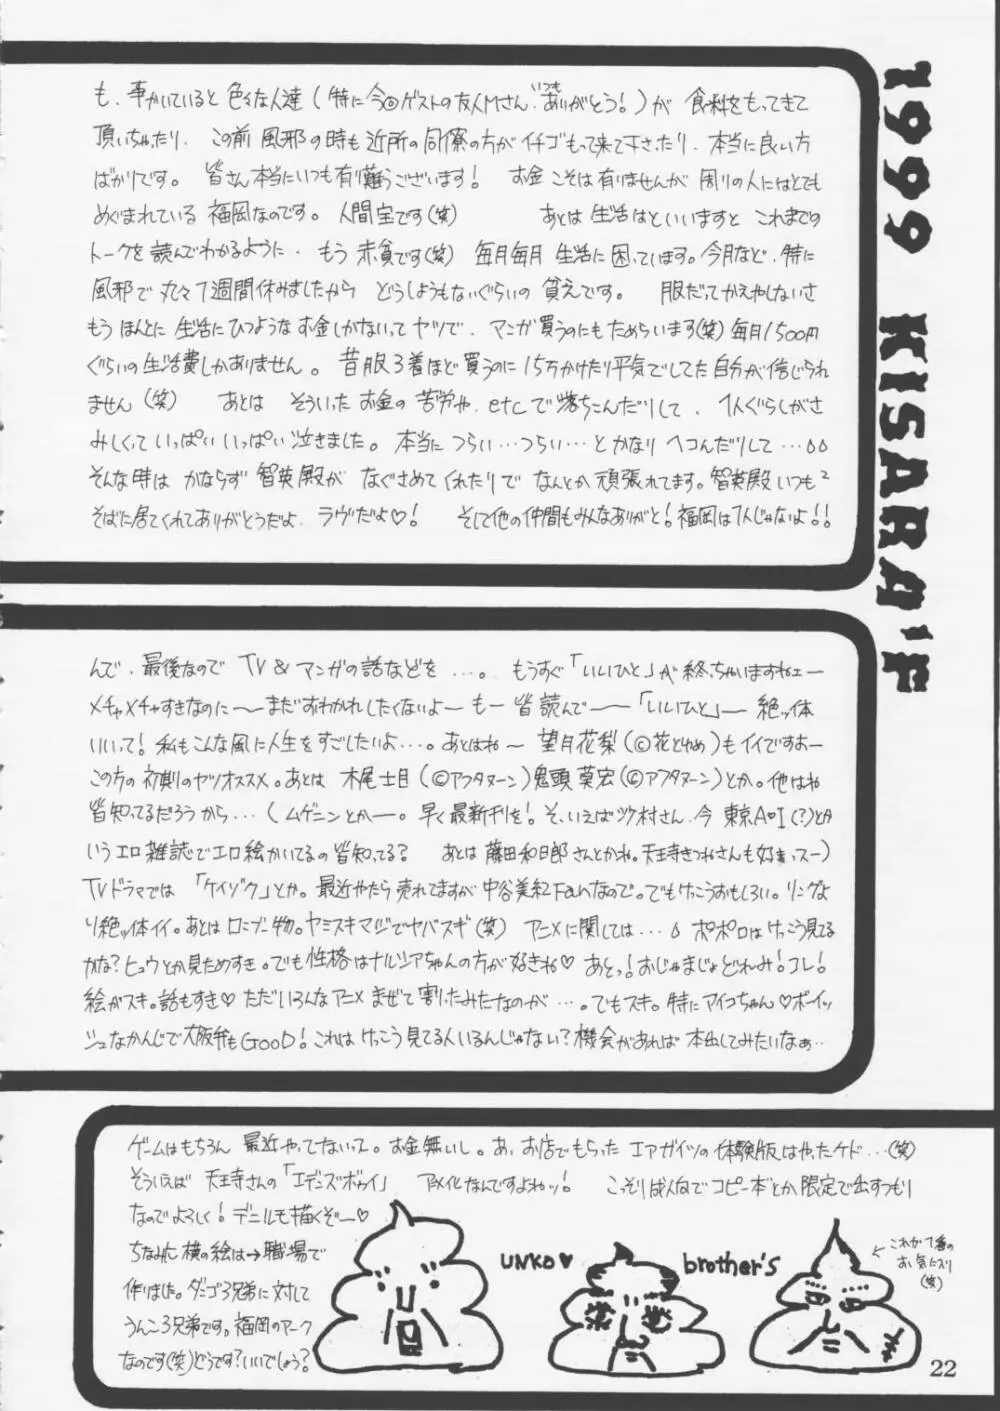 も、事かいていると色々な人達(特に今回ゲストの友人Mさん、いつもありがとう!)が 食料をもってきて
頂いちゃったり、この前 風邪の時も近所の同僚の方がイチゴもって来て下さったり、本当に良い方
ばかりです。皆さん本当にいつも有り難うございます! お金こそは有りませんが周りの人にはとても
めぐまれている福岡なのです。人間宝です(笑) あとは生活はといいますと これまでの
トークを読んでわかるように、もう赤貧です(笑) 毎月毎月生活に困っています。今月など、特に
風邪で丸々1週間休みましたから どうしようもないぐらいの貧えです。 服だってかえやしないさ
もうほんとに生活にひつようなお金しかないってヤツで、マンガ買うのにもためらいます(笑)毎月1500円
ぐらいの生活費しかありません。昔服3着ほど買うのに15万かけたり平気でしてた自分が信じられ
ません(笑) あとは そういったお金の苦労や、etcで落ちこんだりして、1人ぐらしがさ
みしくって いっぱいいっぱい泣きました。本当につらい…つらい…とかなりヘコんだりして…
そんな時は かならず智英殿が なぐさめてくれたりで なんとか頑張れてます。智英殿いつも2
そばに居てくれてありがとうだよ、ラヴだよ♡! そして他の仲間もみんなありがと!福岡は1人じゃないよ!!
1999 KISARA'F
んで、最後なので TV&マンガの話などを…。 もうすぐ「いいひと」が終っちゃいますねェー
メチャメチャすきなのに〜まだおわかれしたくないよ〜もー皆読んで―「いいひと」―絶ッ体
いいって!私もこんな風に人生をすごしたいよ…。あとはね〜 望月花梨(©花とゆめ)もイイですおー
この方の初期のヤツオススメ。あとは 木尾士目(©アフタヌーン)鬼頭莫宏(©アフタヌーン)とか。他はね
皆知ってるだろうから…(ムゲニンとかー。早く最新刊を!。そ、いえばツ村さん、今 東京A♥I(?)とか
いうエロ雑誌でエロ絵かいてるの皆知ってる? あとは藤田和日郎さんとかね。天王寺きつねさんも好きっスー)
TVドラマでは「ケイゾク」とか。最近やたら売れてますが中谷美紀Fanなので。でもけっこうおもしろい。リングよ
り絶ッ体イイ。あとはロンブー物。ヤミスキマジでヤバスギ(笑) アニメに関しては… ポポロはけっこう見てる
かな?ヒュウとか見ためすき。でも性格はナルシアちゃんの方が好きね♡ あとっ!おじゃまじょどれみ!コレ!
絵がスキ。話もすき♡ ただいろんなアニメまぜて割ったみたなのが…。でもスキ。特にアイコちゃん♡ボーイッ
シュなかんじで大阪弁もGOOD!これはけっこう見てる人いるんじゃない?機会があれば 本出してみたいなぁ‥
ゲームはもちろん 最近やってないって。お金無いし。あ、お店でもらった エアガイツの体験版はやったケド…(笑)
そういえば 天王寺さんの「エデンズボゥイ」 アニメ化なんですよねッ! こっそりばん向でコピー本とか限定で出すつもり
なのでよろしく!デニルも描くぞー♡
ちなみに横の絵は→職場で
作りました。ダンゴ3兄弟に対して
うんこ3兄弟です。福岡のマーク
なのです(笑)どうです?いいでしょう?
UNKO♥
brother's
これが1番の
お気に入り
(笑)
22